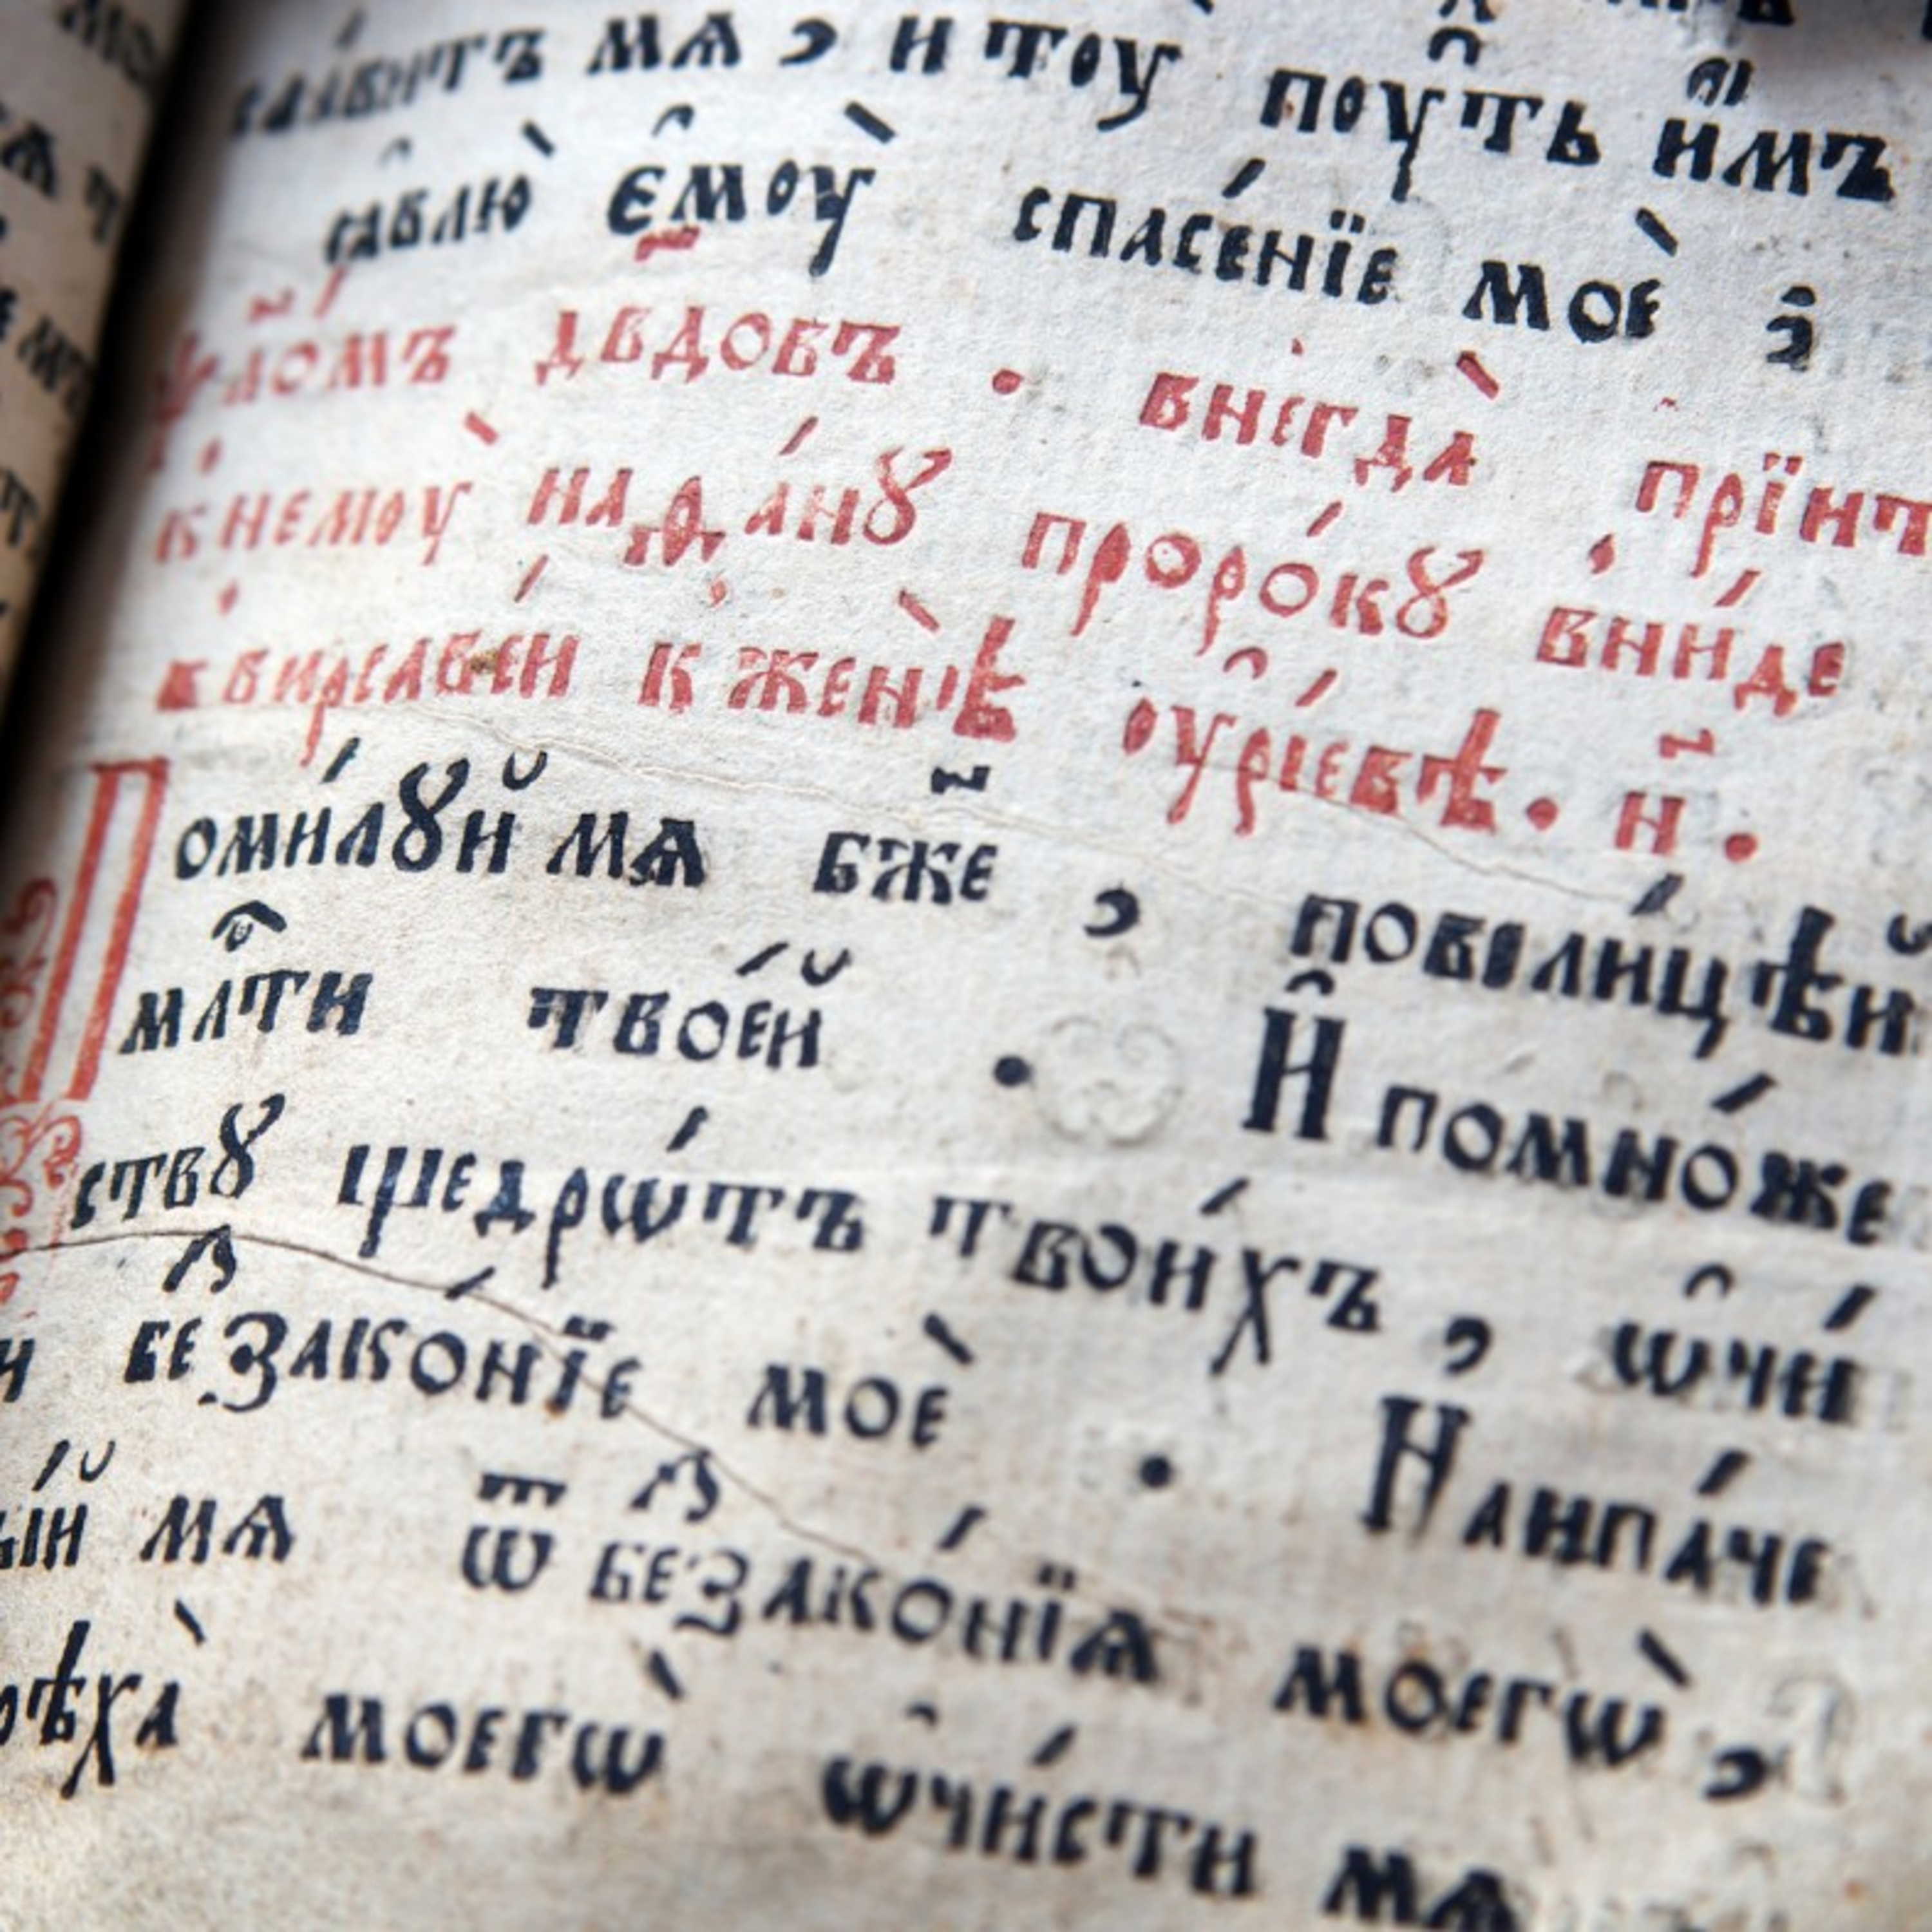 сла́витъ мѧ, и тоу поу̑ть и҆мъ
ꙗ҆влю̀ є҆моу̀ спасе́нїе моѐ
ѱл҃омъ дв҃довъ. внегда̀ прїит
к немоу̀ наѳа́ну проро́кꙋ вни́де
к вирсаве́и к женѣ̀ оу҆рі́евѣ. н҃.
Поми́лꙋй мѧ бж҃е, по вели́цѣй
млⷭ҇ти твое́й. И҆ по мно́же
ствꙋ щедрѡ́тъ твои́хъ, ѡ҆чи́
и беⷥзако́нїе моѐ. Наипа́че
ы́й мѧ ѿ беⷥзако́нїѧ моегѡ̀,
рѣха̀ моегѡ̀ ѡ҆чи́сти мѧ